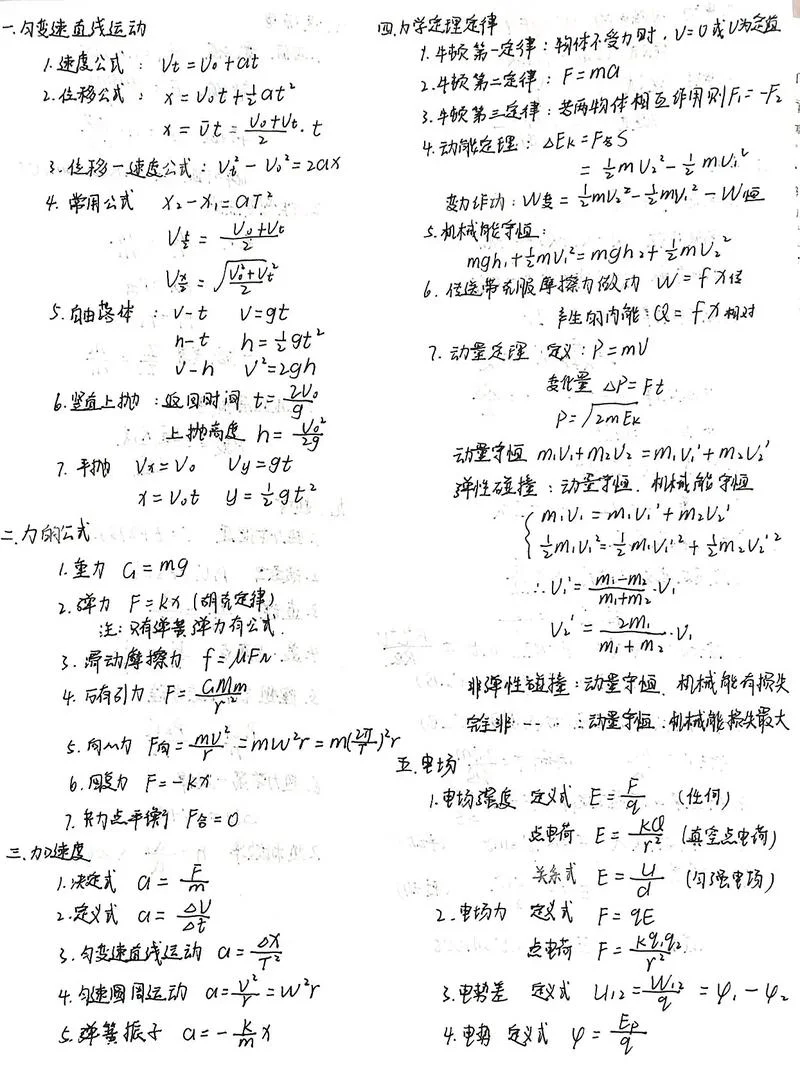 一.匀变速直线运动
1.速度公式： Vt=V₀+at
2.位移公式： x=V₀t+½at²
x=v̄t=(V₀+Vt)/2·t
3.位移—速度公式：Vt²-V₀²=2ax
4.常用公式 x₂-x₁=aT²
V_{t/2}=(V₀+Vt)/2
V_{x/2}=√((V₀²+Vt²)/2)
5.自由落体： v-t v=gt
h-t h=½gt²
v-h v²=2gh
6.竖直上抛：返回时间 t=2V₀/g
上抛高度 h=V₀²/2g
7.平抛 Vx=V₀ Vy=gt
x=V₀t y=½gt²
二.力的公式
1.重力 G=mg
2.弹力 F=kx (胡克定律)
注：只有弹簧弹力有公式.
3.滑动摩擦力 f=μFN.
4.万有引力 F=GMm/r²
5.向心力 F向=mv²/r=mω²r=m(2π/T)²r
6.回复力 F=-kx
7.共力点平衡 F合=0
三.加速度
1.决定式 a=F/m
2.定义式 a=ΔV/Δt
3.匀变速直线运动 a=Δx/T²
4.匀速圆周运动 a=v²/r=ω²r
5.弹簧振子 a=-(k/m)x
四.力学定理定律
1.牛顿第一定律：物体不受力时，V=0或V为定值
2.牛顿第二定律：F=ma
3.牛顿第三定律：若两物体相互作用则F₁=-F₂
4.动能定理：ΔEk=F合S
=½mV₂²-½mV₁²
变力作功：W变=½mV₂²-½mV₁²-W恒
5.机械能守恒：
mgh₁+½mV₁²=mgh₂+½mV₂²
6.传送带克服摩擦力做功 W=fx传
产生的内能：Q=fx相对
7.动量定理 定义：P=mV
变化量 ΔP=Ft
P=√(2mEk)
动量守恒 m₁V₁+m₂V₂=m₁V₁'+m₂V₂'
弹性碰撞：动量守恒.机械能守恒
{ m₁V₁=m₁V₁'+m₂V₂'
½m₁V₁²=½m₁V₁'²+½m₂V₂'²
∴V₁'=(m₁-m₂)/(m₁+m₂)·V₁
V₂'=2m₁/(m₁+m₂)·V₁
非弹性碰撞：动量守恒.机械能有损失
完全非……：动量守恒.机械能损失最大
五.电场
1.电场强度 定义式 E=F/q (任何)
点电荷 E=kQ/r² (真空点电荷)
关系式 E=U/d (匀强电场)
2.电场力 定义式 F=qE
点电荷 F=kq₁q₂/r²
3.电势差 定义式 U₁₂=W₁₂/q=φ₁-φ₂
4.电势 定义式 φ=Ep/q